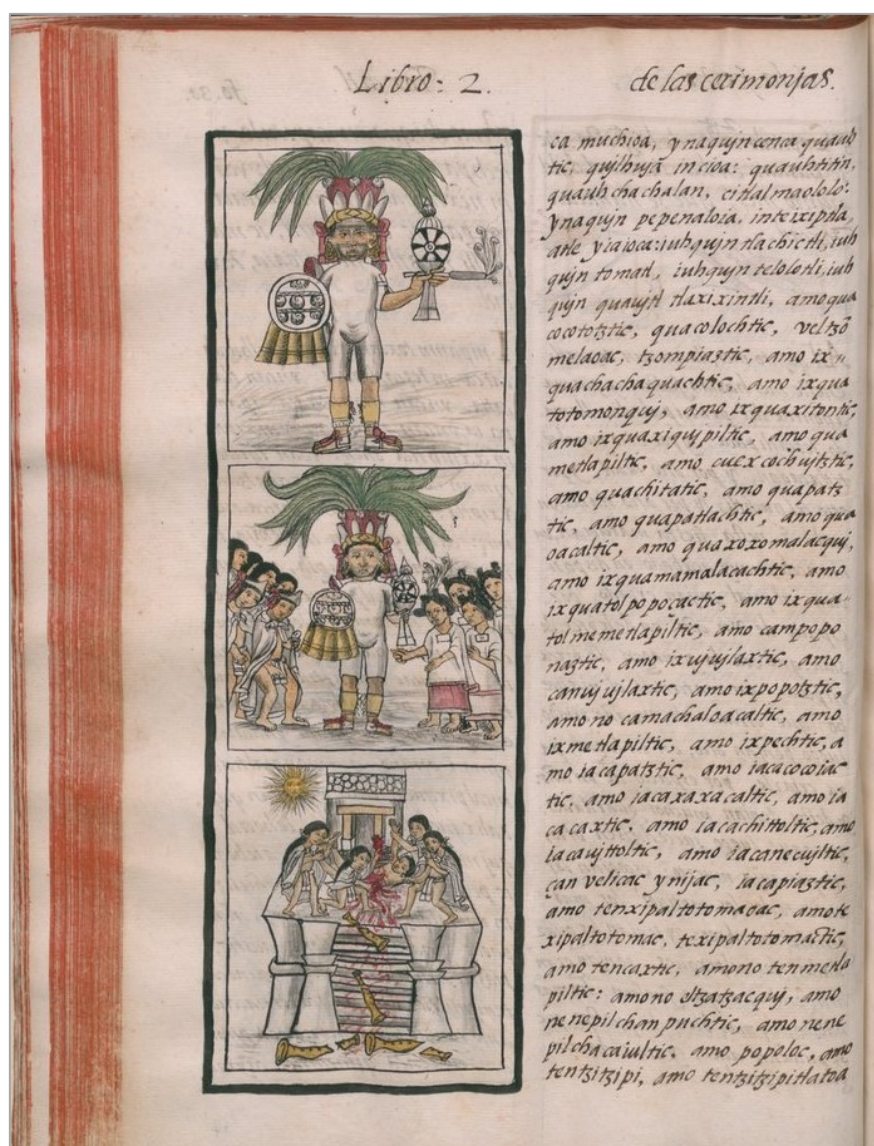 Libro: 2.
de las cerimonjas.
ca muchioa, ynaqujn cenca quauh
tic, qujlhujā in cioa: quauhtitin,
quauh chachalan, citlalmaololo:
ynaqujn pepenaloia, inteixiptla,
atle yiaioca: iuhqujn tlachictli, iuh
qujn tomatl, iuhqujn telolotli, iuh
qujn quaujtl tlaxixintli, amo qua
cocototztic, quacolochtic, veltzō
melaoac, tzompiaztic, amo ix
quachachaquachtic, amo ixqua
totomonquj, amo ixquaxitontic,
amo ixquaxiqujpiltic, amo qua
metlapiltic, amo cuexcochujtztic,
amo quachitatic, amo quapatz
tic, amo quapatlachtic, amo qua
oacaltic, amo quaxoxomalacquj,
amo ixquamamalacachtic, amo
ixquatolpopoçactic, amo ixqua
tolmemetlapiltic, amo campopo
naztic, amo ixujujlaxtic, amo
canujujlaxtic, amo ixpopotztic,
amo no camachaloacaltic, amo
ixmetlapiltic, amo ixpechtic, a
mo iacapatztic, amo iacacocoiac
tic, amo iacaxaxacaltic, amo ia
cacaxtic, amo iacachittoltic, amo
iacaujttoltic, amo iacanecujltic,
çan velicac ynijac, iacapiaztic,
amo tenxipaltotomaoac, amo te
xipaltotomac, texipaltotomactic,
amo tencaxtic, amono tenmetla
piltic: amono eltzatzacquj, amo
nenepilchanpuchtic, amo nene
pilchacaiultic, amo popoloc, amo
tentzitzipi, amo tentzitzipitlatoa